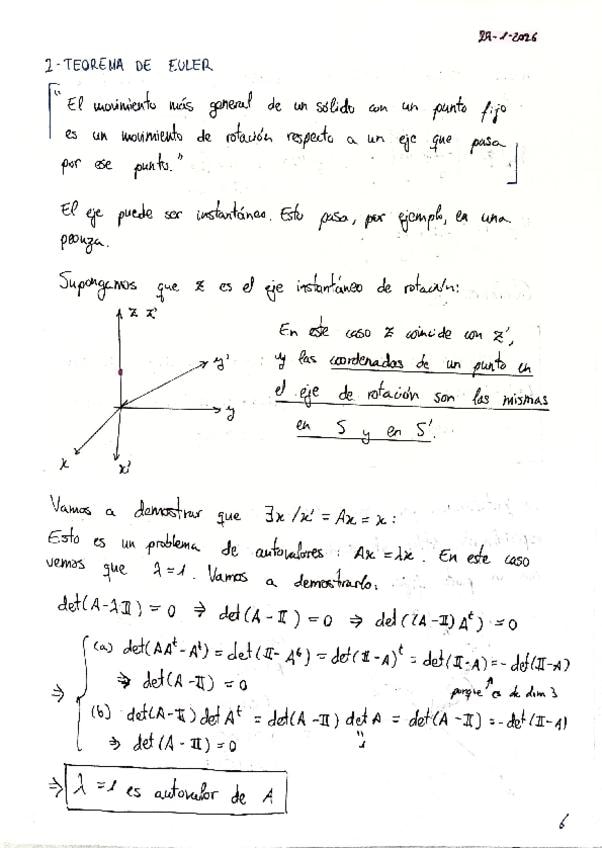 29-1-2026
2-TEOREMA DE EULER
"El movimiento más general de un sólido con un punto fijo
es un movimiento de rotación respecto a un eje que pasa
por ese punto."
El eje puede ser instantáneo. Esto pasa, por ejemplo, en una
peonza.
Supongamos que z es el eje instantáneo de rotación:
z z'
y'
y
x
x'
En este caso z coincide con z',
y las coordenadas de un punto en
el eje de rotación son las mismas
en S y en S'.
Vamos a demostrar que ∃x / x' = Ax = x:
Esto es un problema de autovalores: Ax = λx. En este caso
vemos que λ=1. Vamos a demostrarlo:
det(A-λII) = 0 ⇒ det(A-II) = 0 ⇒ det((A-II)Aᵗ) = 0
⇒ (a) det(AAᵗ-Aᵗ) = det(II-Aᵗ) = det(II-A)ᵗ = det(II-A) = -det(II-A)
⇒ det(A-II) = 0
porque ↑ es de dim 3
(b) det(A-II) det Aᵗ = det(A-II) det A = det(A-II) = -det(II-A)
"
1
⇒ det(A-II) = 0
⇒ λ=1 es autovalor de A
6